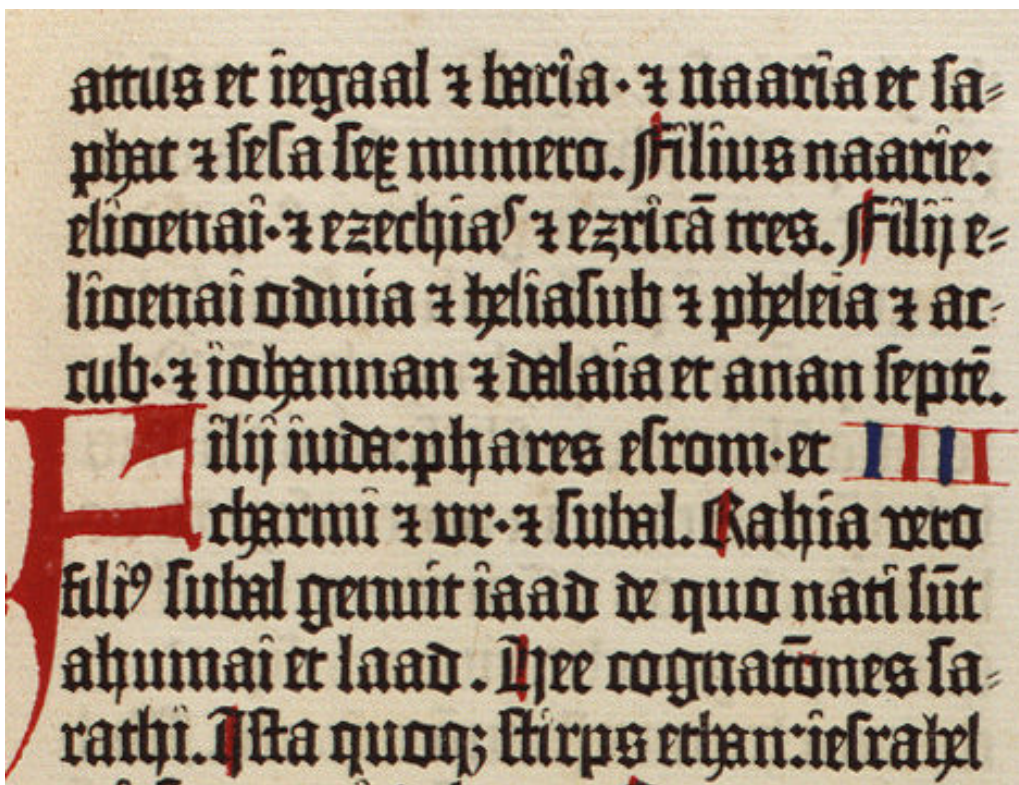 attus et iegaal ⁊ baria· ⁊ naaria et ſa⸗
phat ⁊ ſeſa ſex numero. Filius naarie:
elioenai·⁊ ezechias ⁊ ezricā tres. Filij e⸗
lioenai oduia ⁊ heliaſub ⁊ pheleia ⁊ ac⸗
cub·⁊ iohannan ⁊ dalaia et anan ſeptē.
Filij iuda:phares eſrom·et IIII
charmi ⁊ ur·⁊ ſubal. Rahia vero
filiꝰ ſubal genuit iaad de quo nati ſūt
ahumai et laad. Hee cognatōnes ſa⸗
rathi. Iſta quoqꝫ ſtirps ethan:ieſrahel